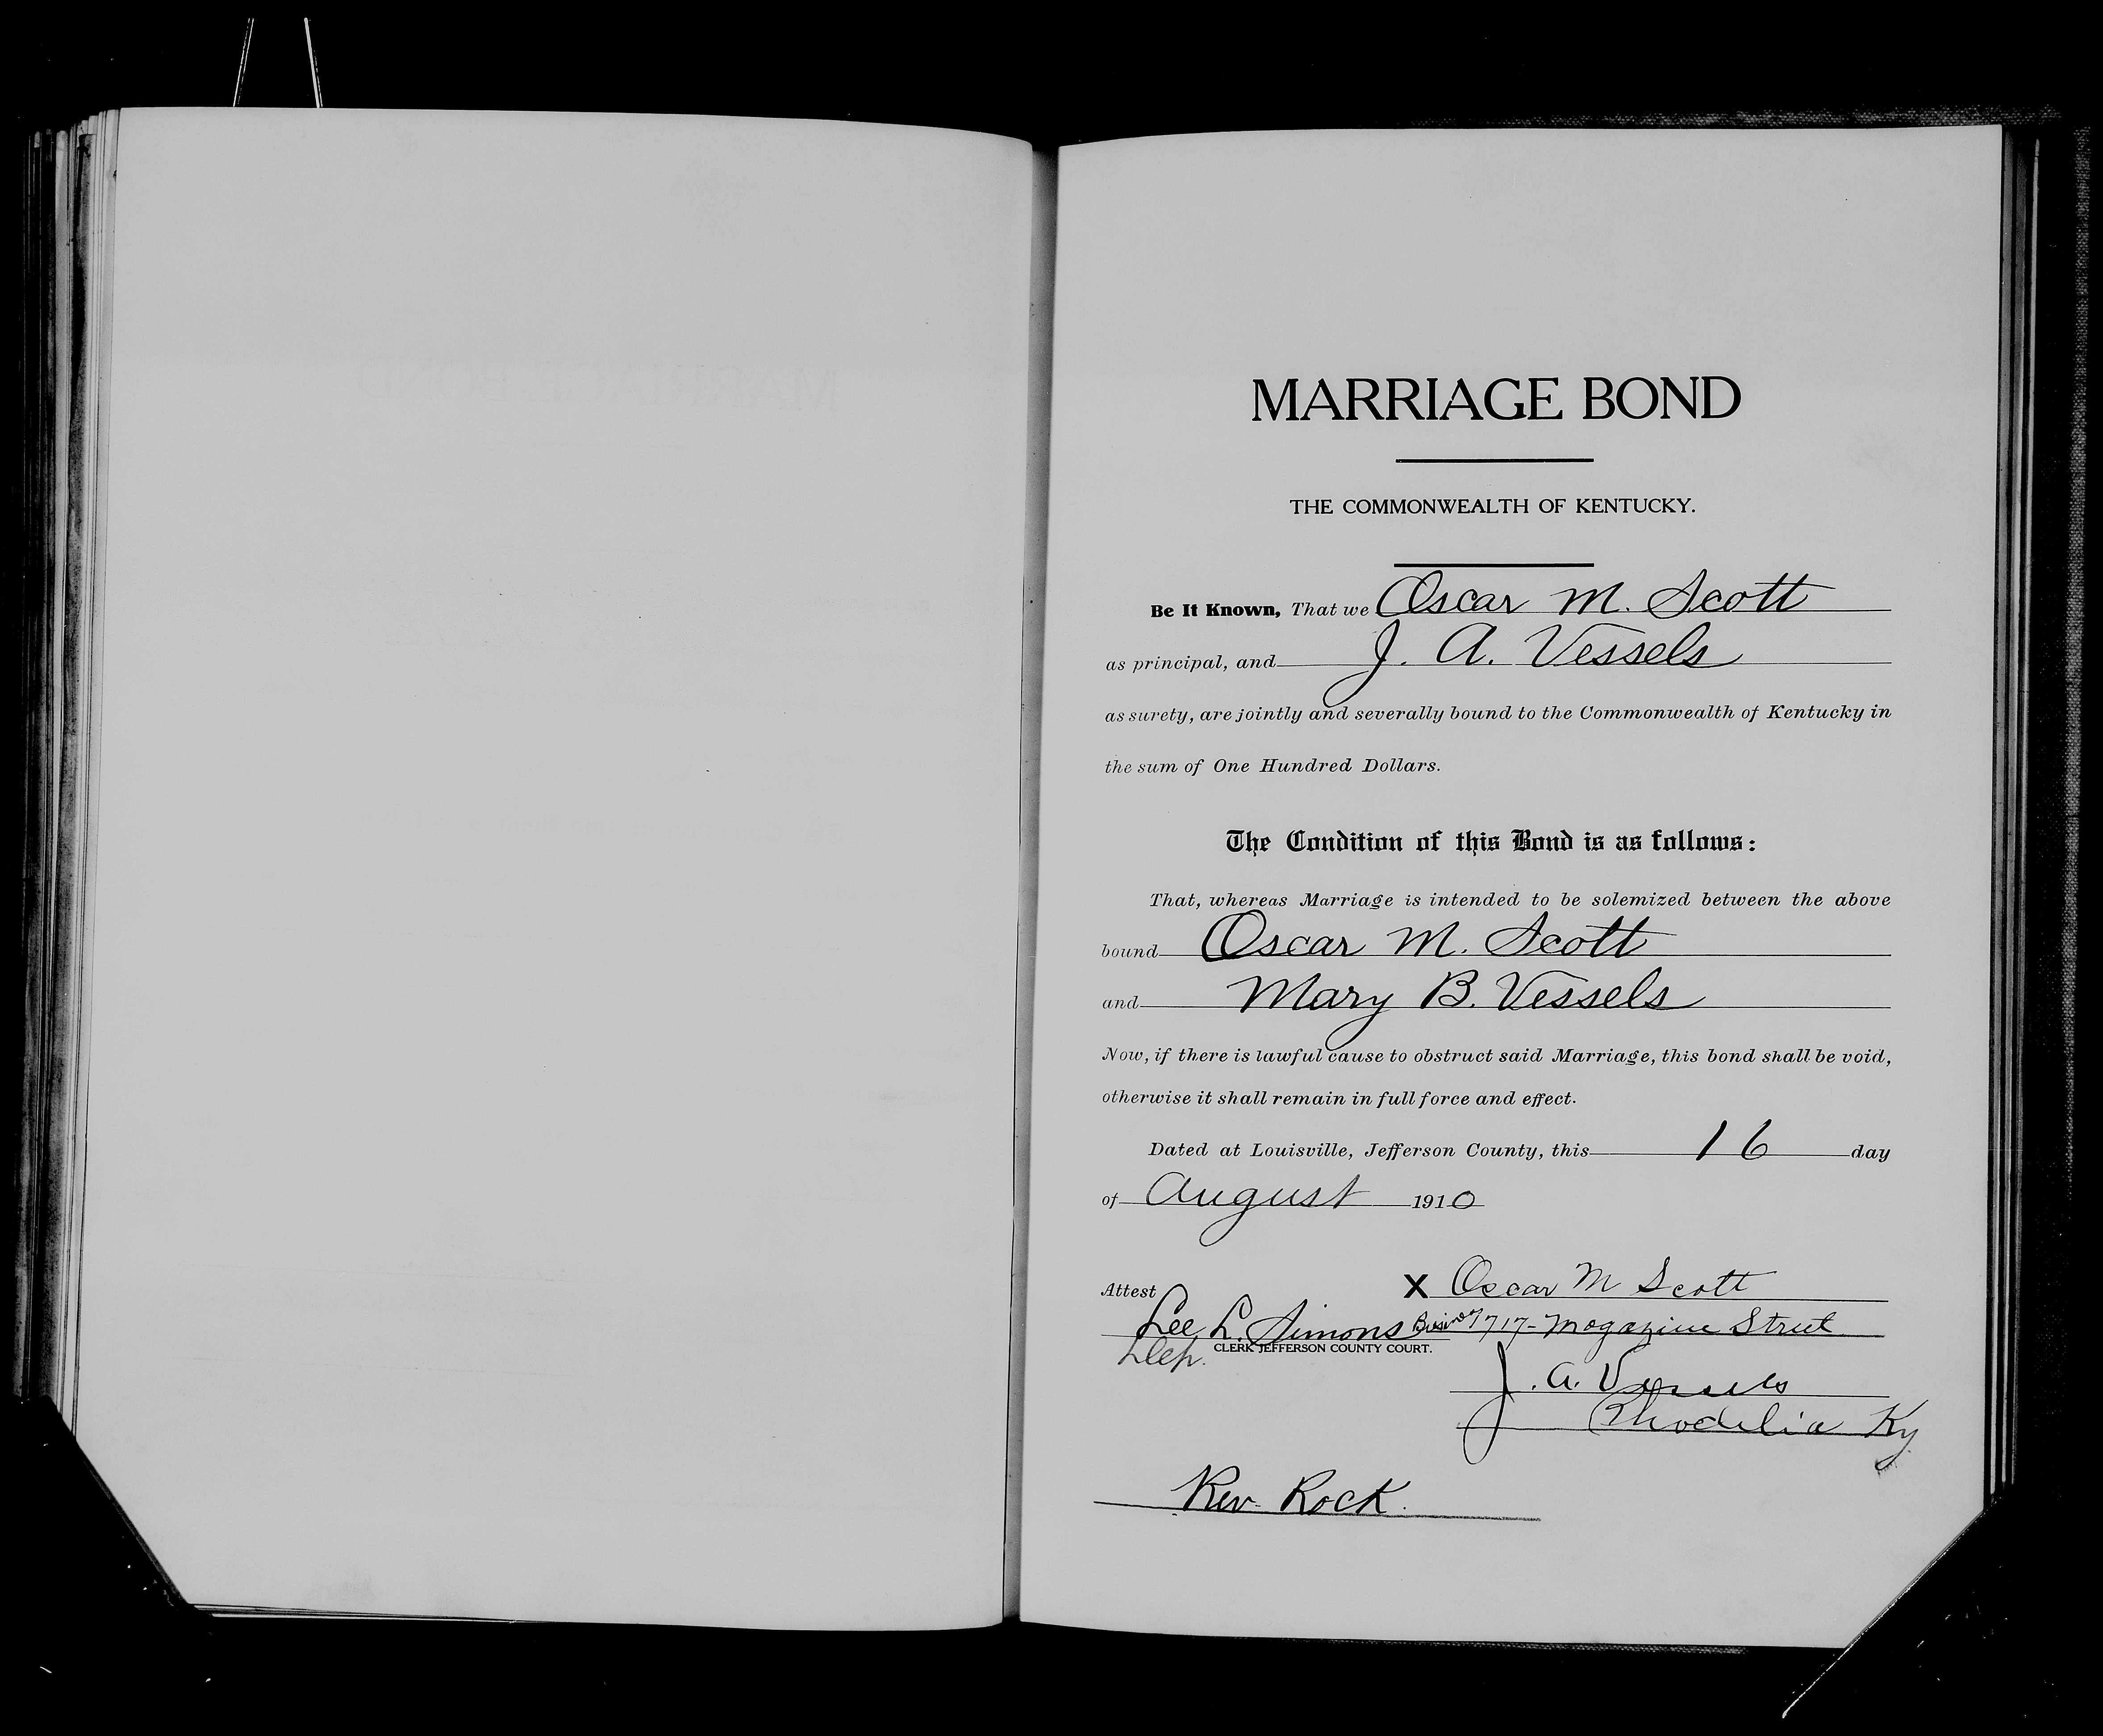 MARRIAGE BOND
THE COMMONWEALTH OF KENTUCKY.
Be It Known, That we Oscar M. Scott
as principal, and J. A. Vessels
as surety, are jointly and severally bound to the Commonwealth of Kentucky in
the sum of One Hundred Dollars.
The Condition of this Bond is as follows:
That, whereas Marriage is intended to be solemized between the above
bound Oscar M. Scott
and Mary B. Vessels
Now, if there is lawful cause to obstruct said Marriage, this bond shall be void,
otherwise it shall remain in full force and effect.
Dated at Louisville, Jefferson County, this 16 day
of August 1910
Attest X Oscar M Scott
Lee L. Simons 1717- Magazine Street
Dep. CLERK JEFFERSON COUNTY COURT.
J. A. Vessels
Rhodelia Ky
Rev. Rock.